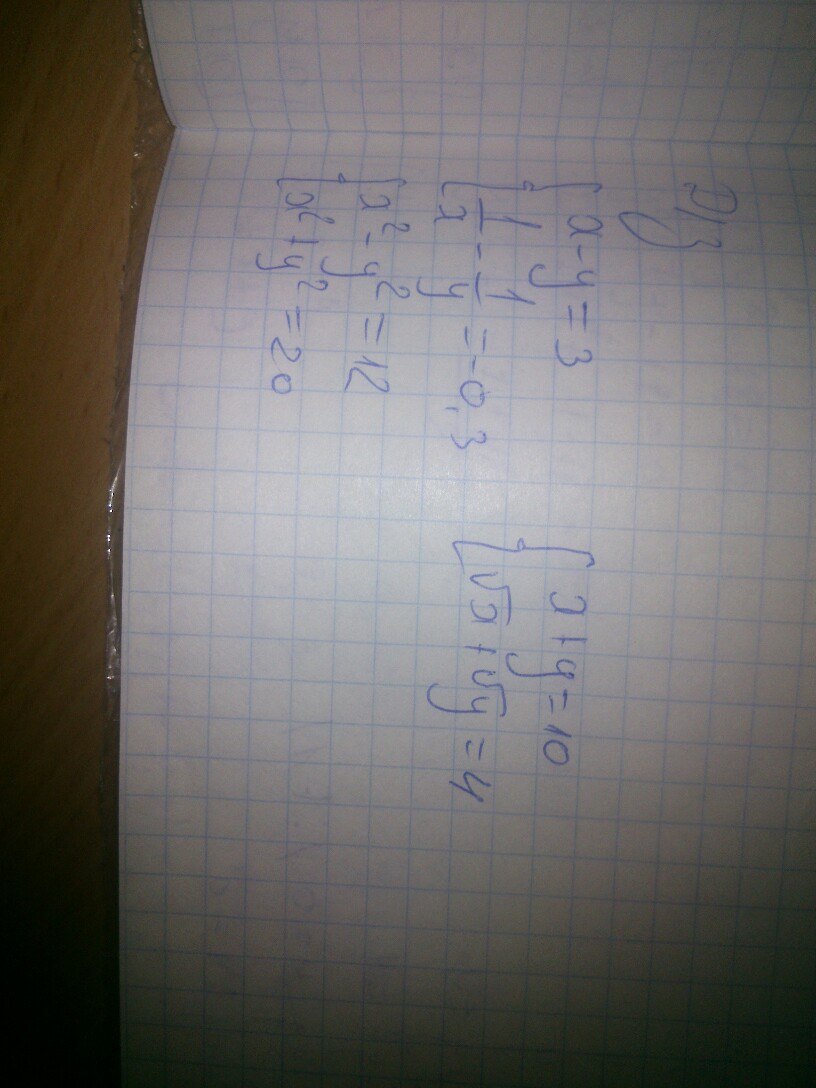 Д/З
{ x - y = 3
{ 1/x - 1/y = -0,3
{ x² - y² = 12
{ x² + y² = 20
{ x + y = 10
{ √x + √y = 4